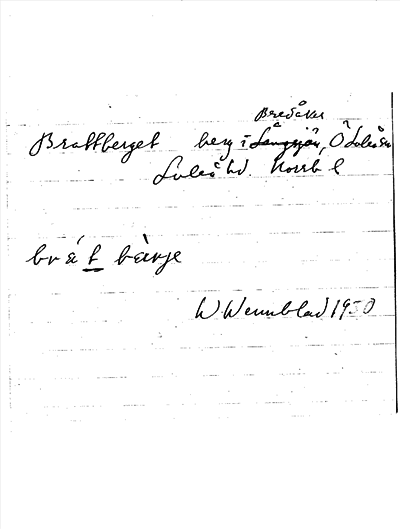 Bredåker
Brattberget berg i Långsjön, Ö Luleå sn
Luleå hd. Norrb l
brát bàrje
W Wennblad 1930